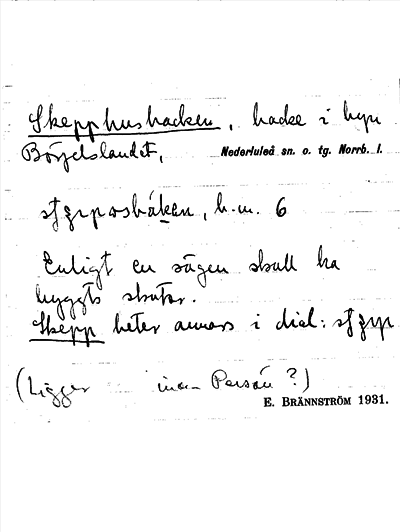 Skepphusbacken, backe i byn
Börjelslandet, Nederluleå sn. o. tg. Norrb. l.
h.m. 6
Enligt en sägen skall ha
byggts skutor.
Skepp heter annars i dial:
(Ligger inom Persön?)
E. BRÄNNSTRÖM 1931.